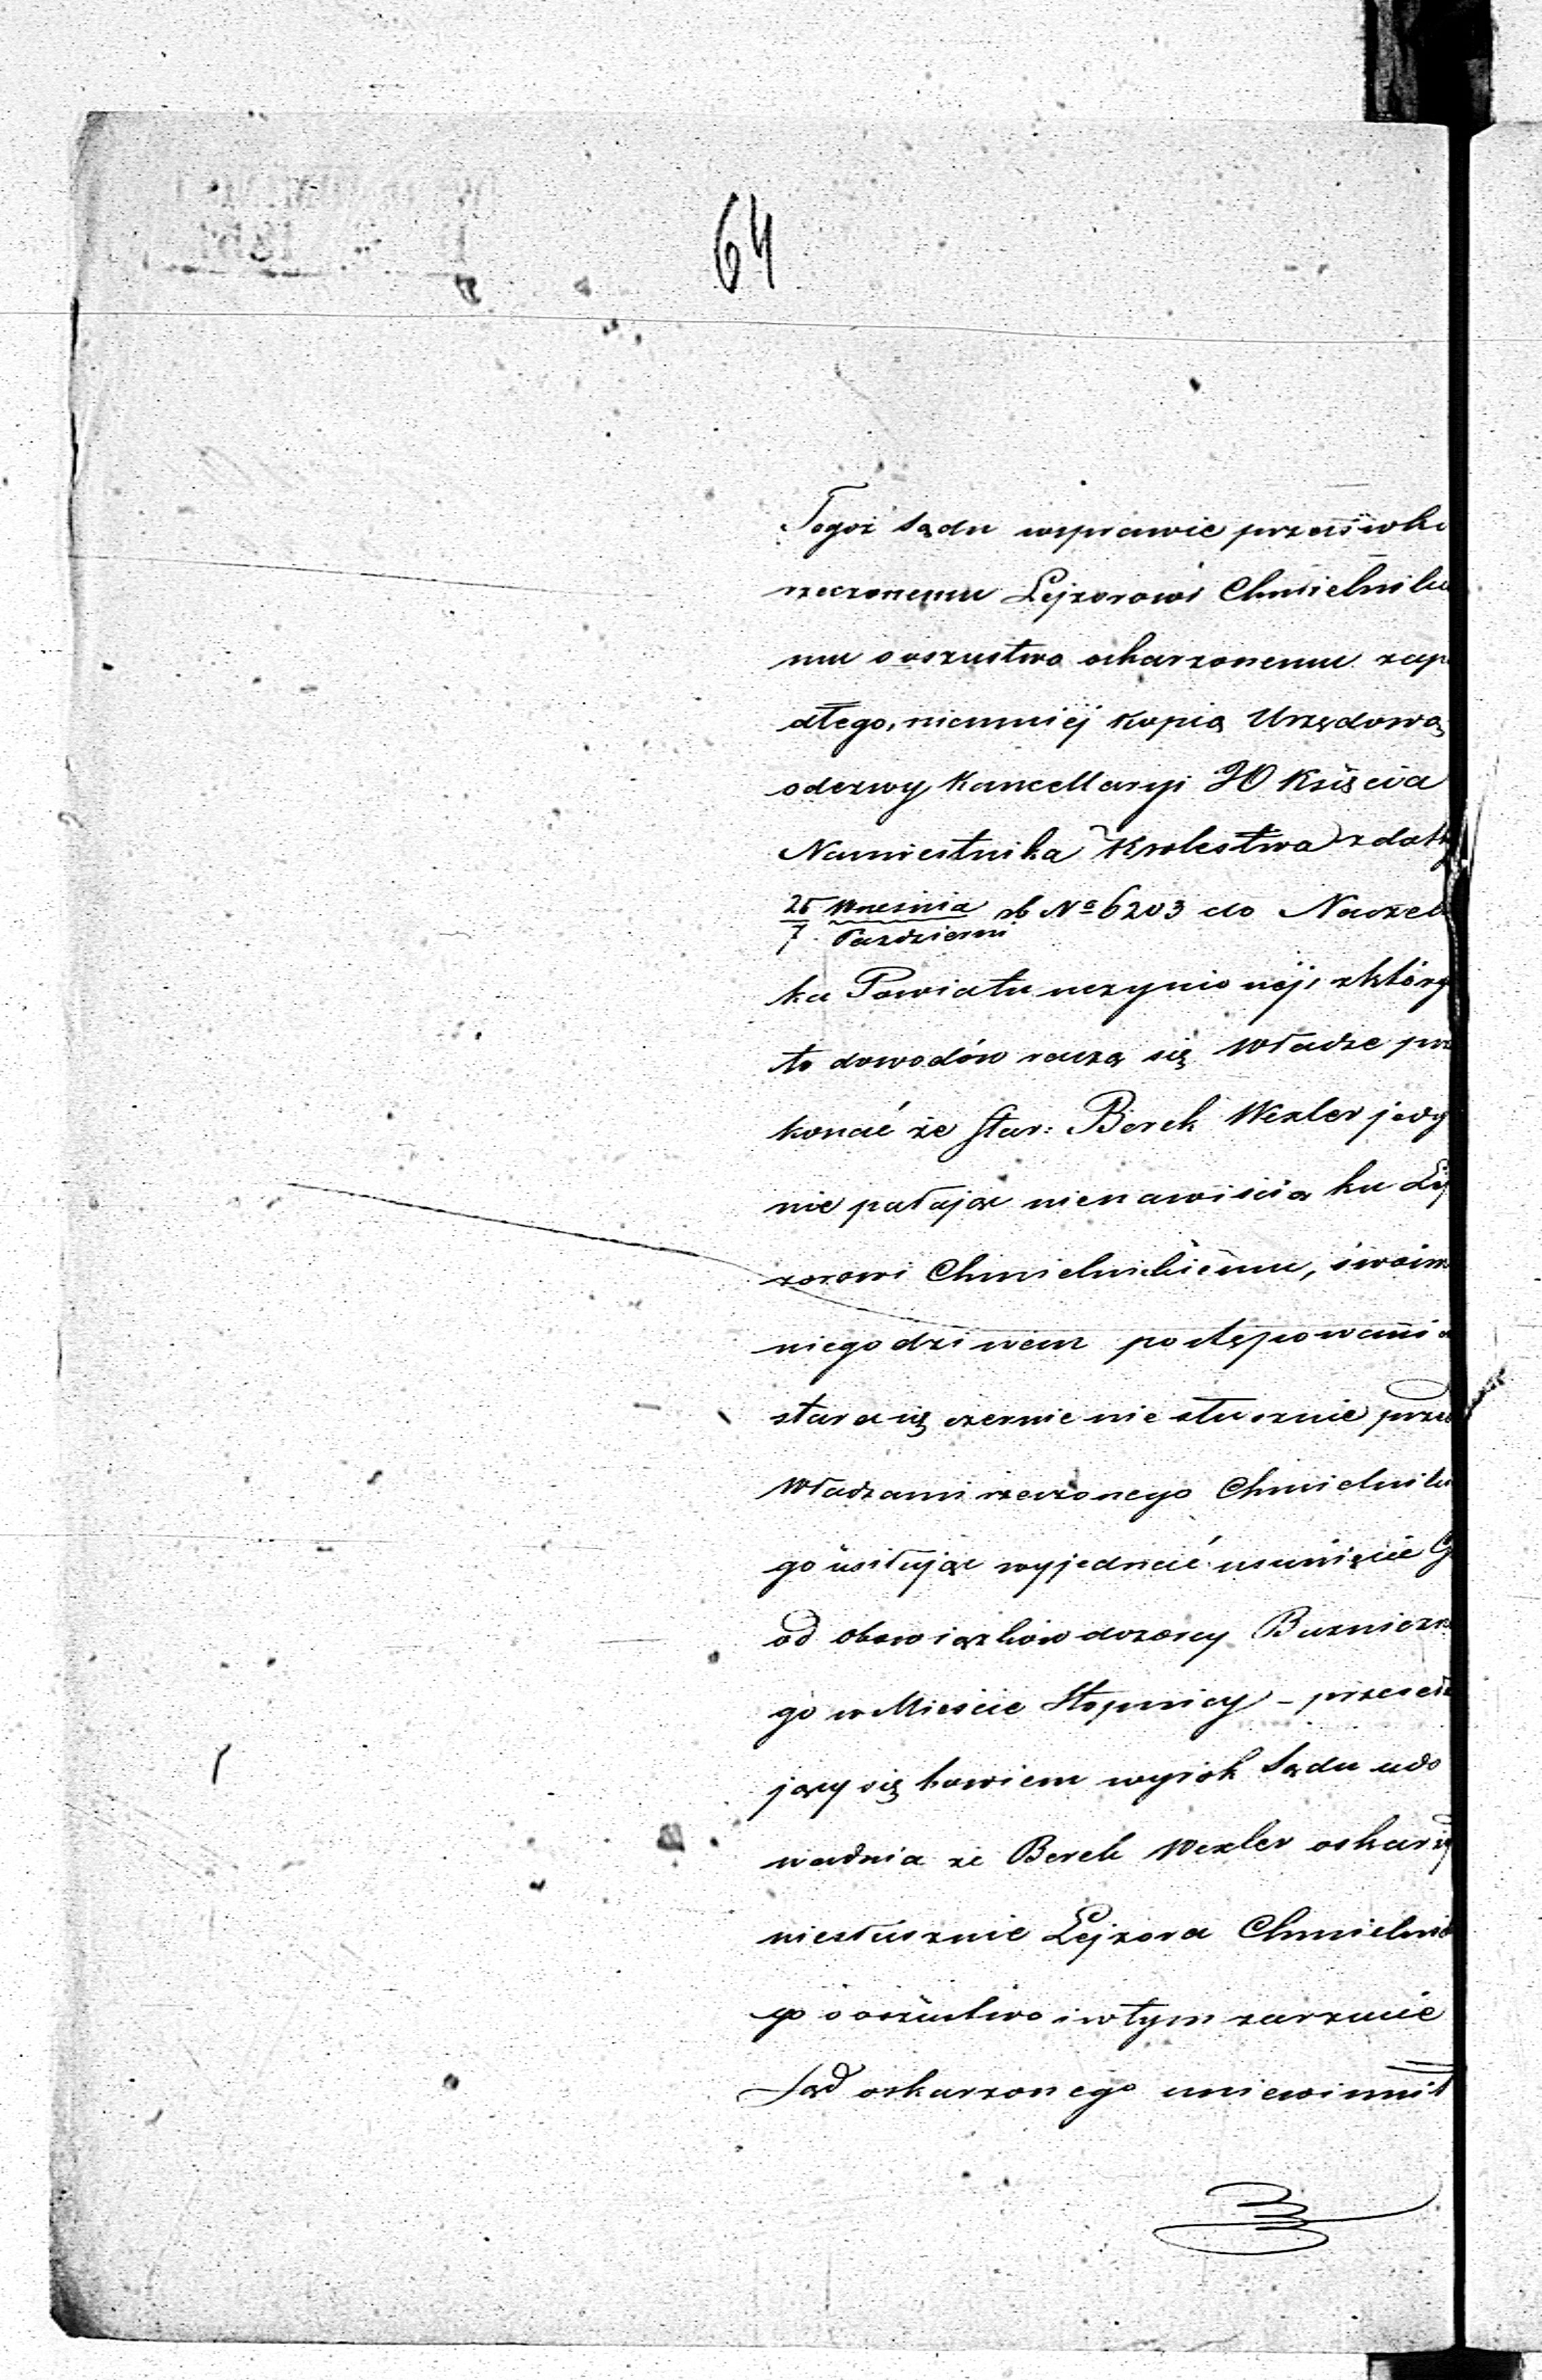 64
Tegoż Sądu wsprawie przeciwko
rzeczonemu Lejzorowi Chmielnicki
mu o oszustwo oskarzonemu zapa
dłego, niemniej Kopią Urzędową
odezwy Kancellaryi JO Księcia
Namiestnika Krolestwa z daty
25/7 Wrzesnia/Pazdzierni rb No 6203 do Naczel
ka Powiatu uczynionej, z który
to dowodów raczą się Władze prze
konać że Star: Berek Wexler jedy
nie pałając nienawiścią ku Lej
zorowi Chmielnickiemu, swoim
niegodziwem postępowani
stara się czernic niesłusznie przed
Władzami rzeczonego Chmielnicki
go usiłując wyjednać usunięcie G
od obowiązków dozorcy Bużniczne
go w Mieście Stopnicy –
jący się bowiem wyrok Sądu udo
wadnia że Berek Wexler oskarży
niesłusznie Lejzora Chmielnic
go o oszustwo i w tym zarzucie
Sąd oskarzonego uniewinnił